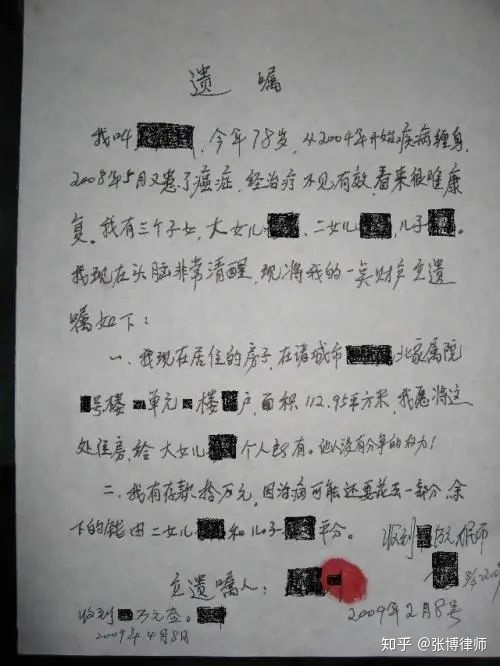 遗嘱
我叫，今年78岁，从2004年开始疾病缠身，
2008年5月又患了癌症，经治疗不见有效，看来很难康
复。我有三个子女，大女儿、二女儿、儿子。
我现在头脑非常清醒，现将我的一点财产立遗
嘱如下：
一、我现在居住的房子，在诸城市北家属院
号楼单元楼户，面积112.95平方米，我愿将这
处住房，给大女儿个人所有。他人没有分争的权力！
二、我有存款拾万元，因治病可能还要花去一部分，余
下的钱由二女儿和儿子平分。
收到万元
立遗嘱人：
2009年2月8号
收到万元整。
2009年4月8日
知乎 @张博律师